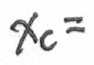 xc =